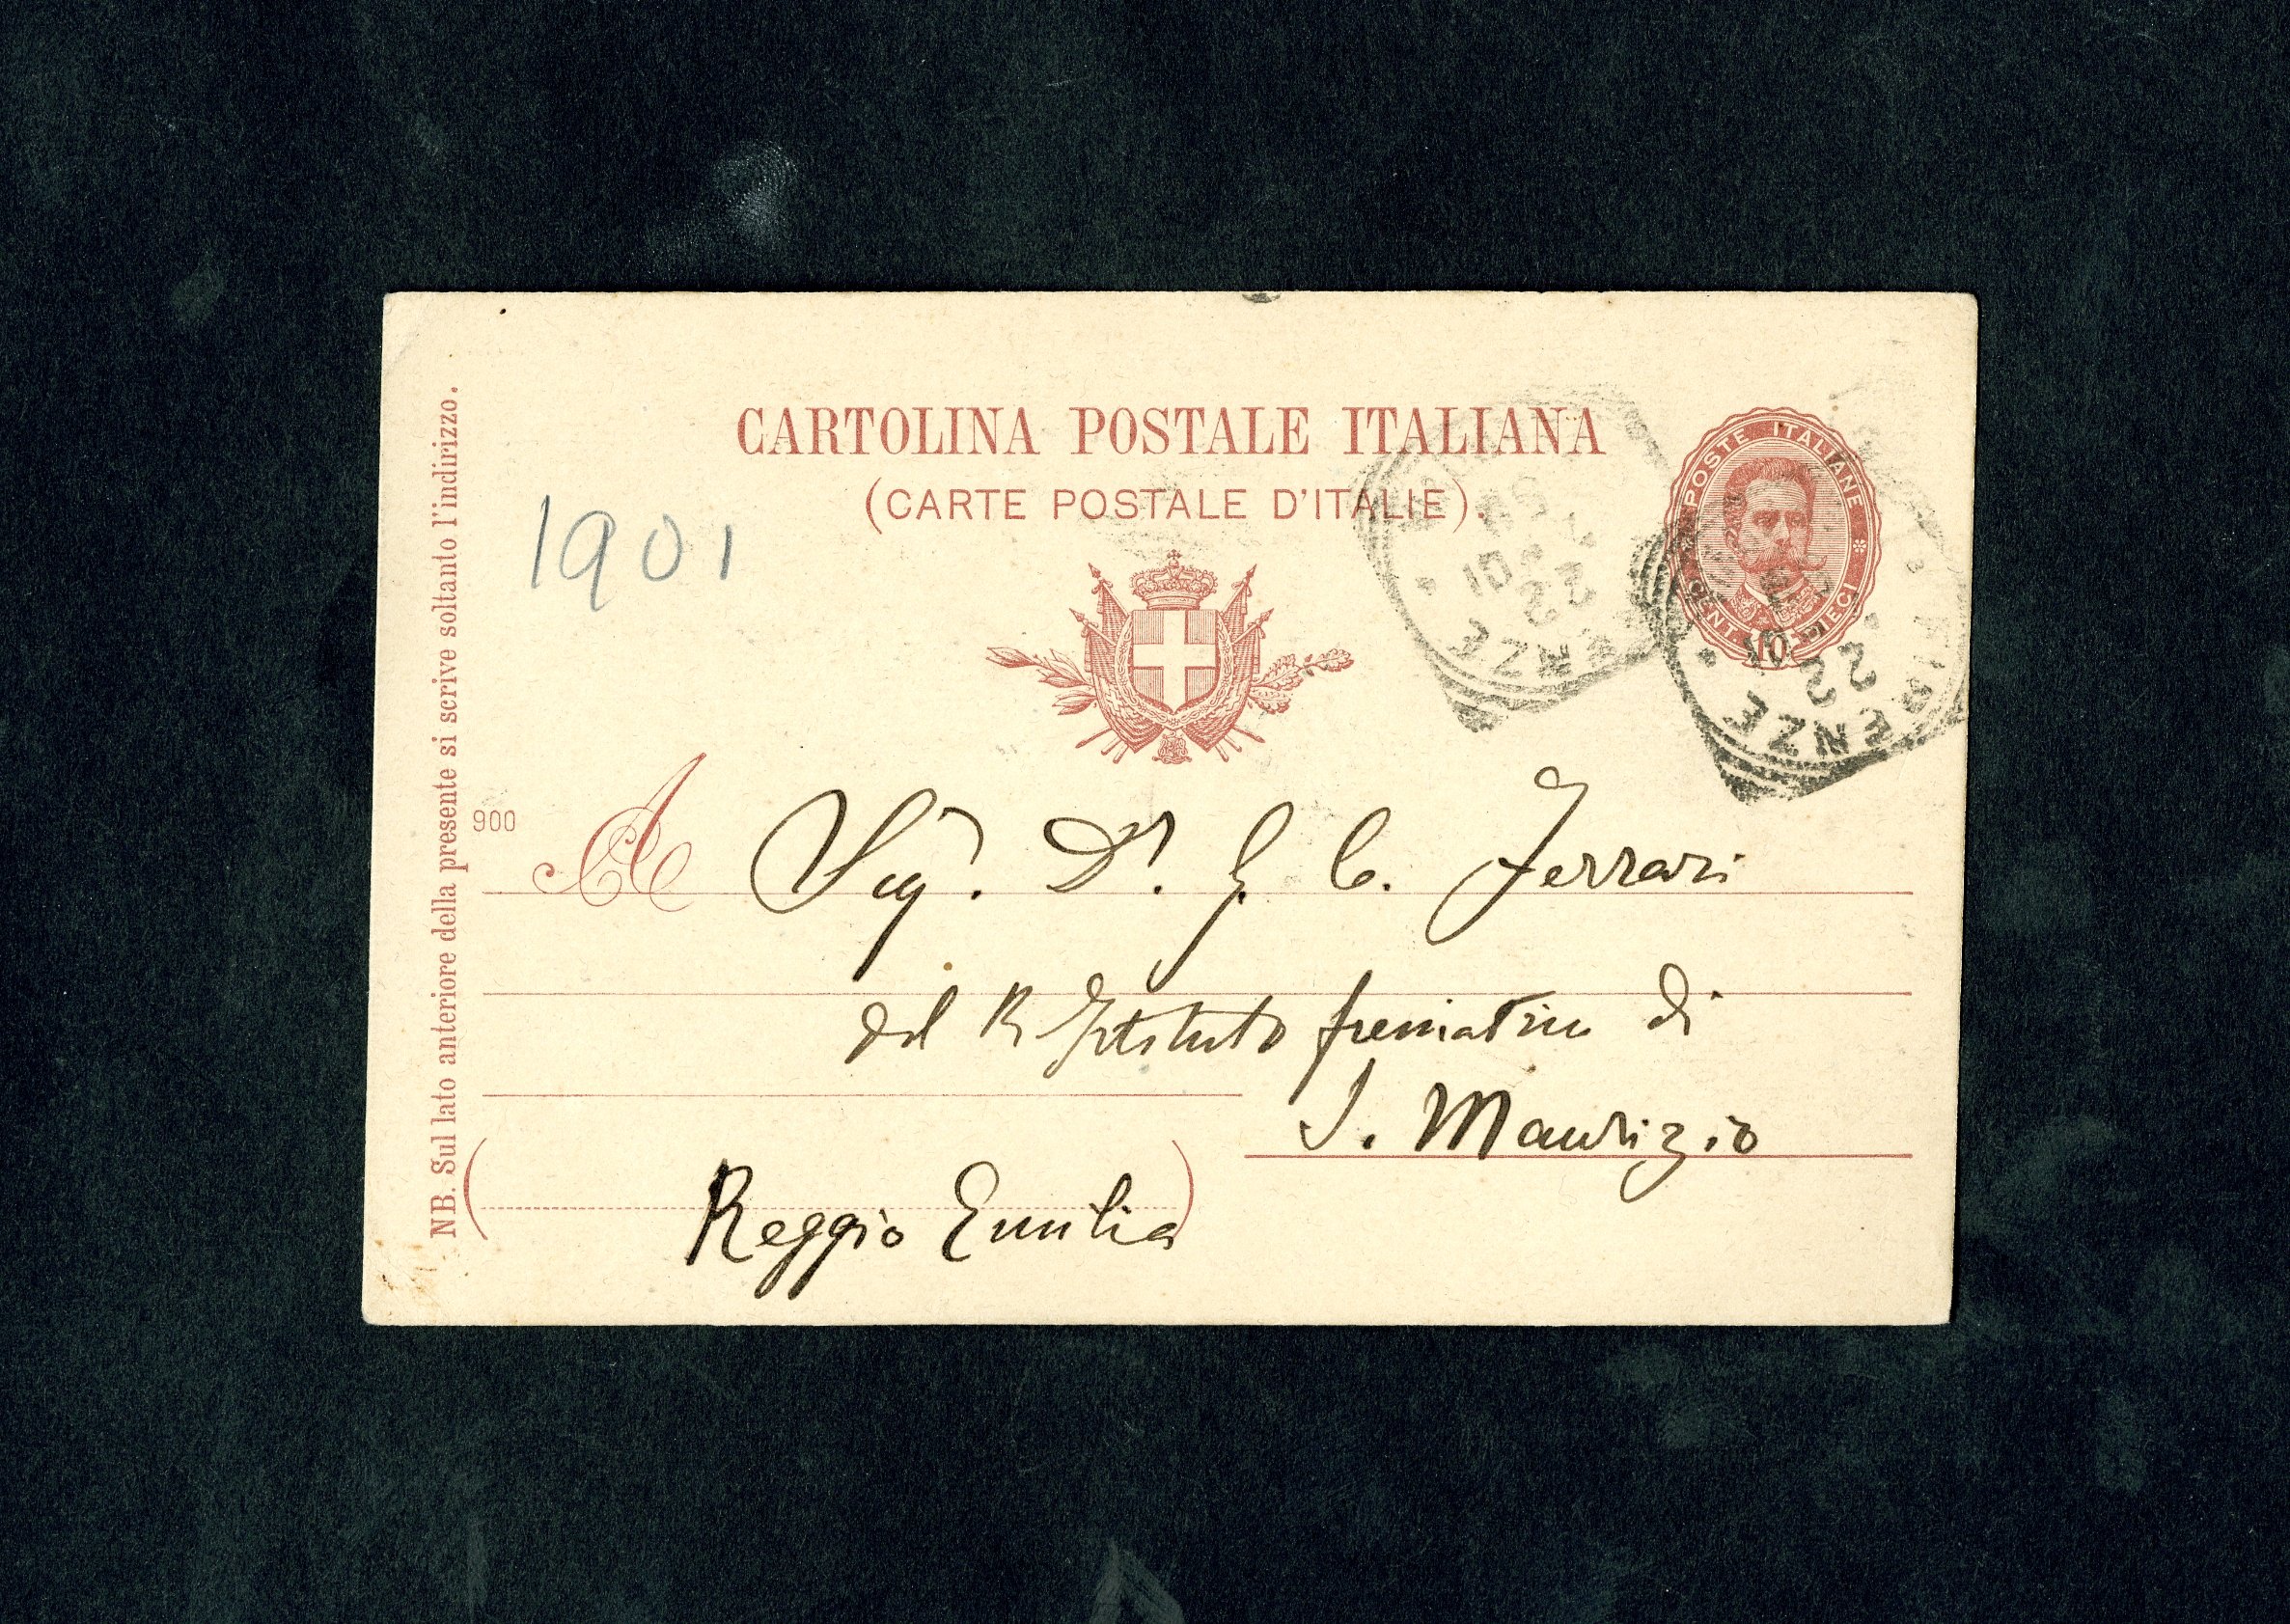 CARTOLINA POSTALE ITALIANA
(CARTE POSTALE D'ITALIE).
POSTE ITALIANE
CENT. DIECI
10
FIRENZE
22
01
FIRENZE
22
01
1901
NB. Sul lato anteriore della presente si scrive soltanto l'indirizzo.
900
A Sig. Dr. G. C. Ferrari
del R Istituto freniatrico di
S. Maurizio
Reggio Emilia